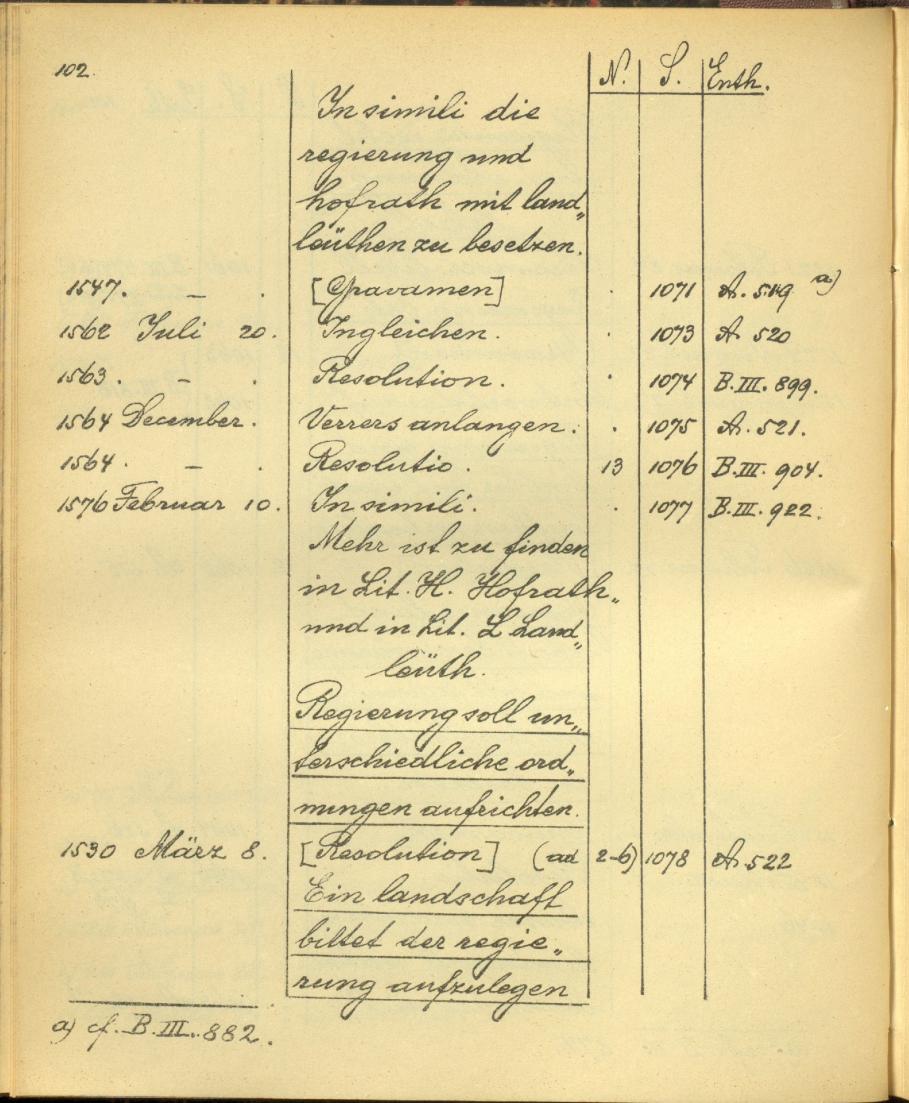 102.
N. S. Enth.
In simili die
regierung und
hofrath mit land„
leüthen zu besetzen.
1547. — . [Gravamen] . 1071 A. 519 a)
1562 Juli 20. Ingleichen. . 1073 A. 520
1563. — . Resolution. . 1074 B.III. 899.
1564 December. Verrers anlangen. . 1075 A. 521.
1564. — . Resolutio. 13 1076 B.III. 904.
1576 Februar 10. In simili. . 1077 B.III. 922.
Mehr ist zu finden
in Lit. H. Hofrath„
und in Lit. L Land„
leüth.
Regierung soll un„
terschiedliche ord„
nungen aufrichten.
1530 März 8. [Resolution] (ad 2-6) 1078 A. 522
Ein landschaft
bittet der regie„
rung aufzulegen
a) cf. B.III. 882.